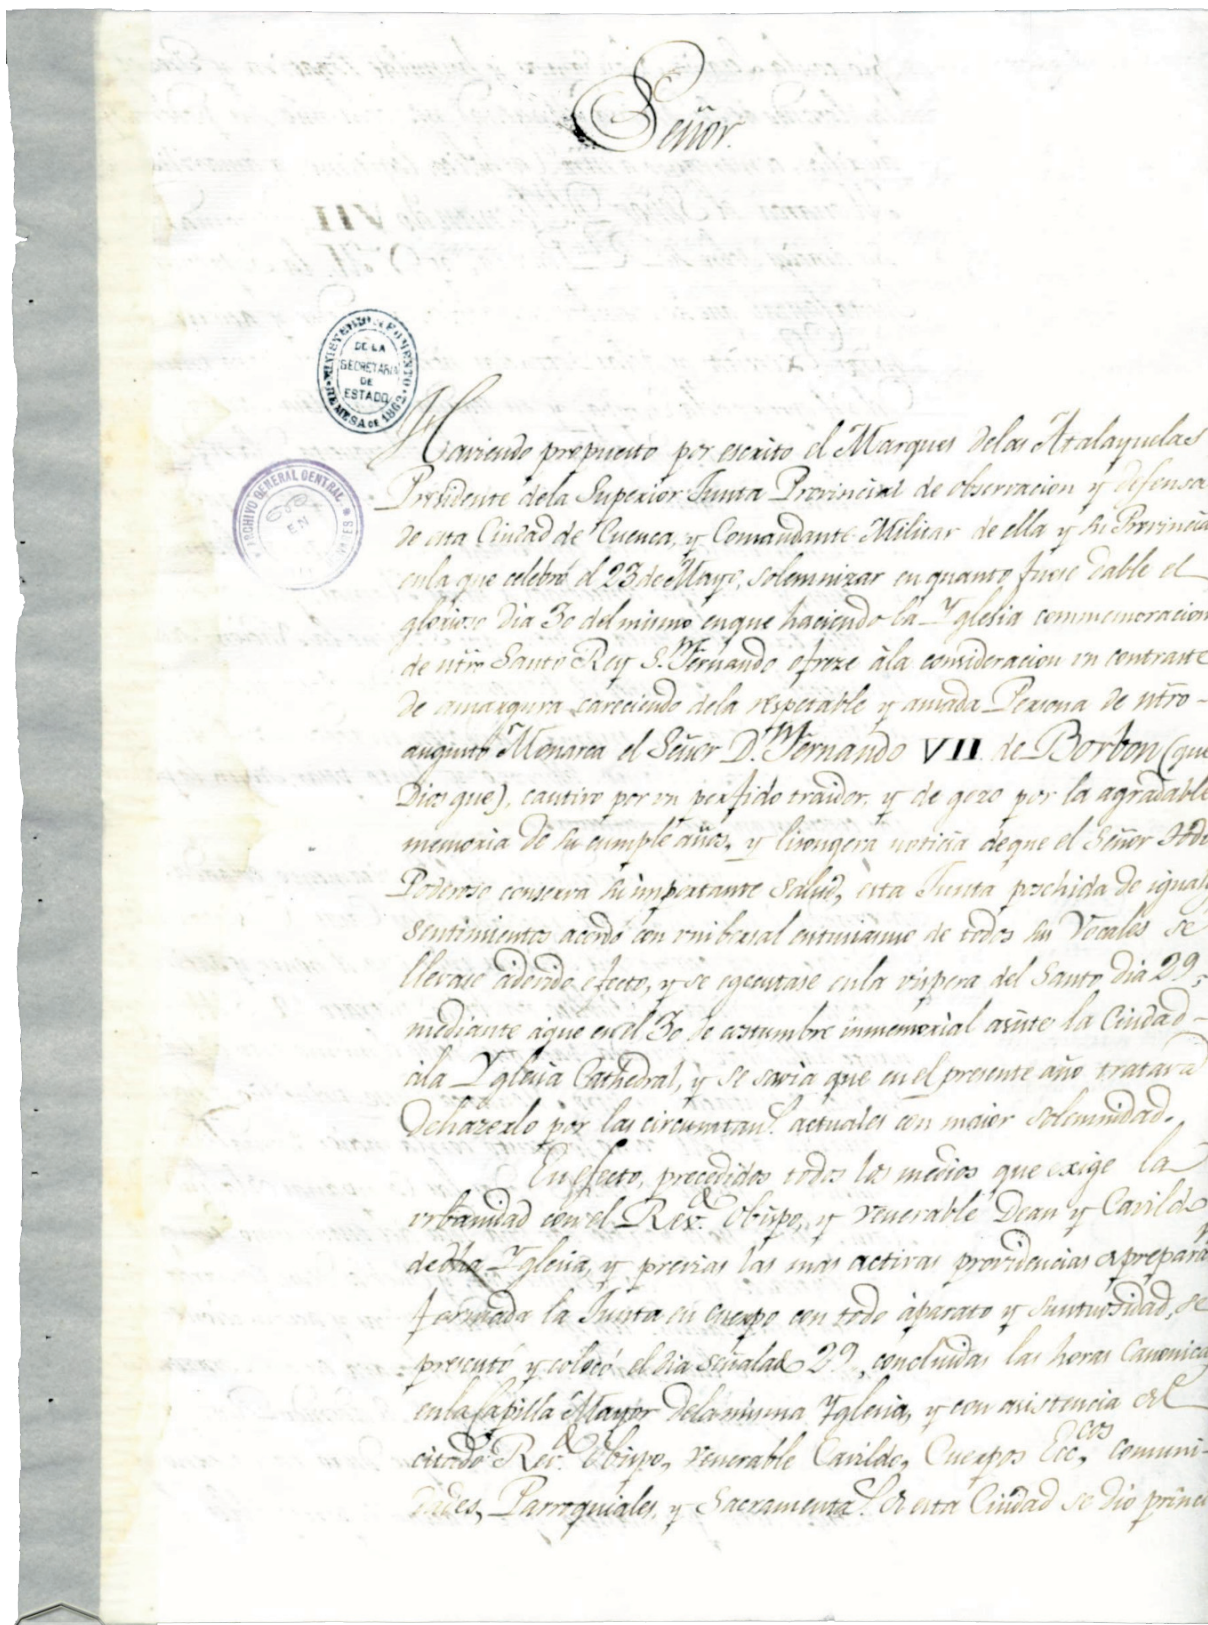 Señor.
MINISTERIO DE FOMENTO
DE LA
SECRETARIA
DE
ESTADO
REMESA DE 1862
ARCHIVO GENERAL CENTRAL
EN
Haviendo propuesto por escrito el Marques delas Atalayuelas
Presidente dela Superior Junta Provincial de observacion y defensa
de esta Ciudad de Cuenca, y Comandante Militar de ella y su Provincia
enla que celebró el 23 de Mayo, solemnizar en quanto fuese dable el
glorioso dia 30 del mismo enque haciendo la Yglesia commemoracion
de ntro Santo Rey S.n Fernando ofreze àla consideracion un contraste
de amargura careciendo dela respetable y amada Persona de ntro
augusto Monarca el Señor D.n Fernando VII de Borbon (que
Dios gue), cautivo por un perfido traidor, y de gozo por la agradable
memoria de su cumple años, y lisongera noticia deque el Señor todo
Poderoso conserva su importante salud, esta Junta posehida de iguales
sentimientos acordó con unibersal entusiasmo de todos sus Vocales se
llevase adevido efecto, y se egecutase enla vispera del Santo dia 29,
mediante àque en el 30 de costumbre inmemorial asiste la Ciudad
àla Yglesia Cathedral, y se savia que en el presente año tratava
dehazerlo por las circunstan.s actuales con maior solemnidad.
En efecto, precedidos todos los medios que exige la
urbanidad con el Rev.do Obispo, y venerable Dean y Cavildo
de dha Yglesia, y previas las mas activas providencias de prepara
formada la Junta en cuerpo con todo àparato y suntuosidad, se
presentó y colocó el dia señalado 29, concluidas las horas Canonicas
enla Capilla Mayor dela misma Yglesia, y con asistencia del
citado Rev.do Obispo, venerable Cavildo, Cuerpos Ecc.cos, comuni-
dades, Parroquiales, y Sacramenta.s de esta Ciudad se dio princi